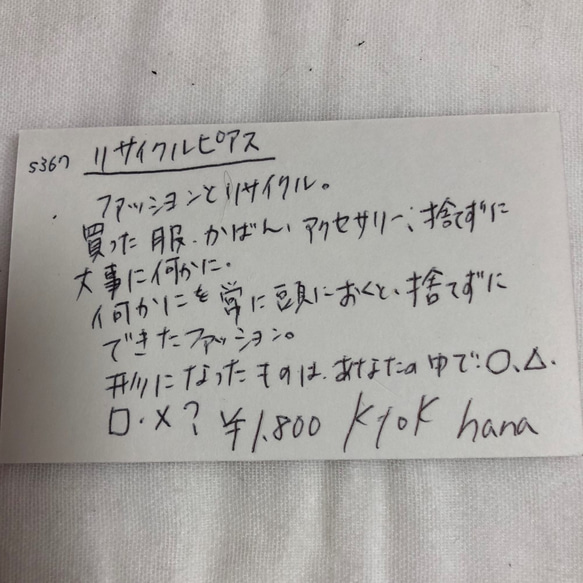 S367 リサイクルピアス
ファッションとリサイクル。
買った服、かばん、アクセサリー、捨てずに
大事に何かに。
何かにを常に頭におくと、捨てずに
できたファッション。
形になったものは、あなたの中で:〇、△、
□・×? ¥1,800 kyok hana